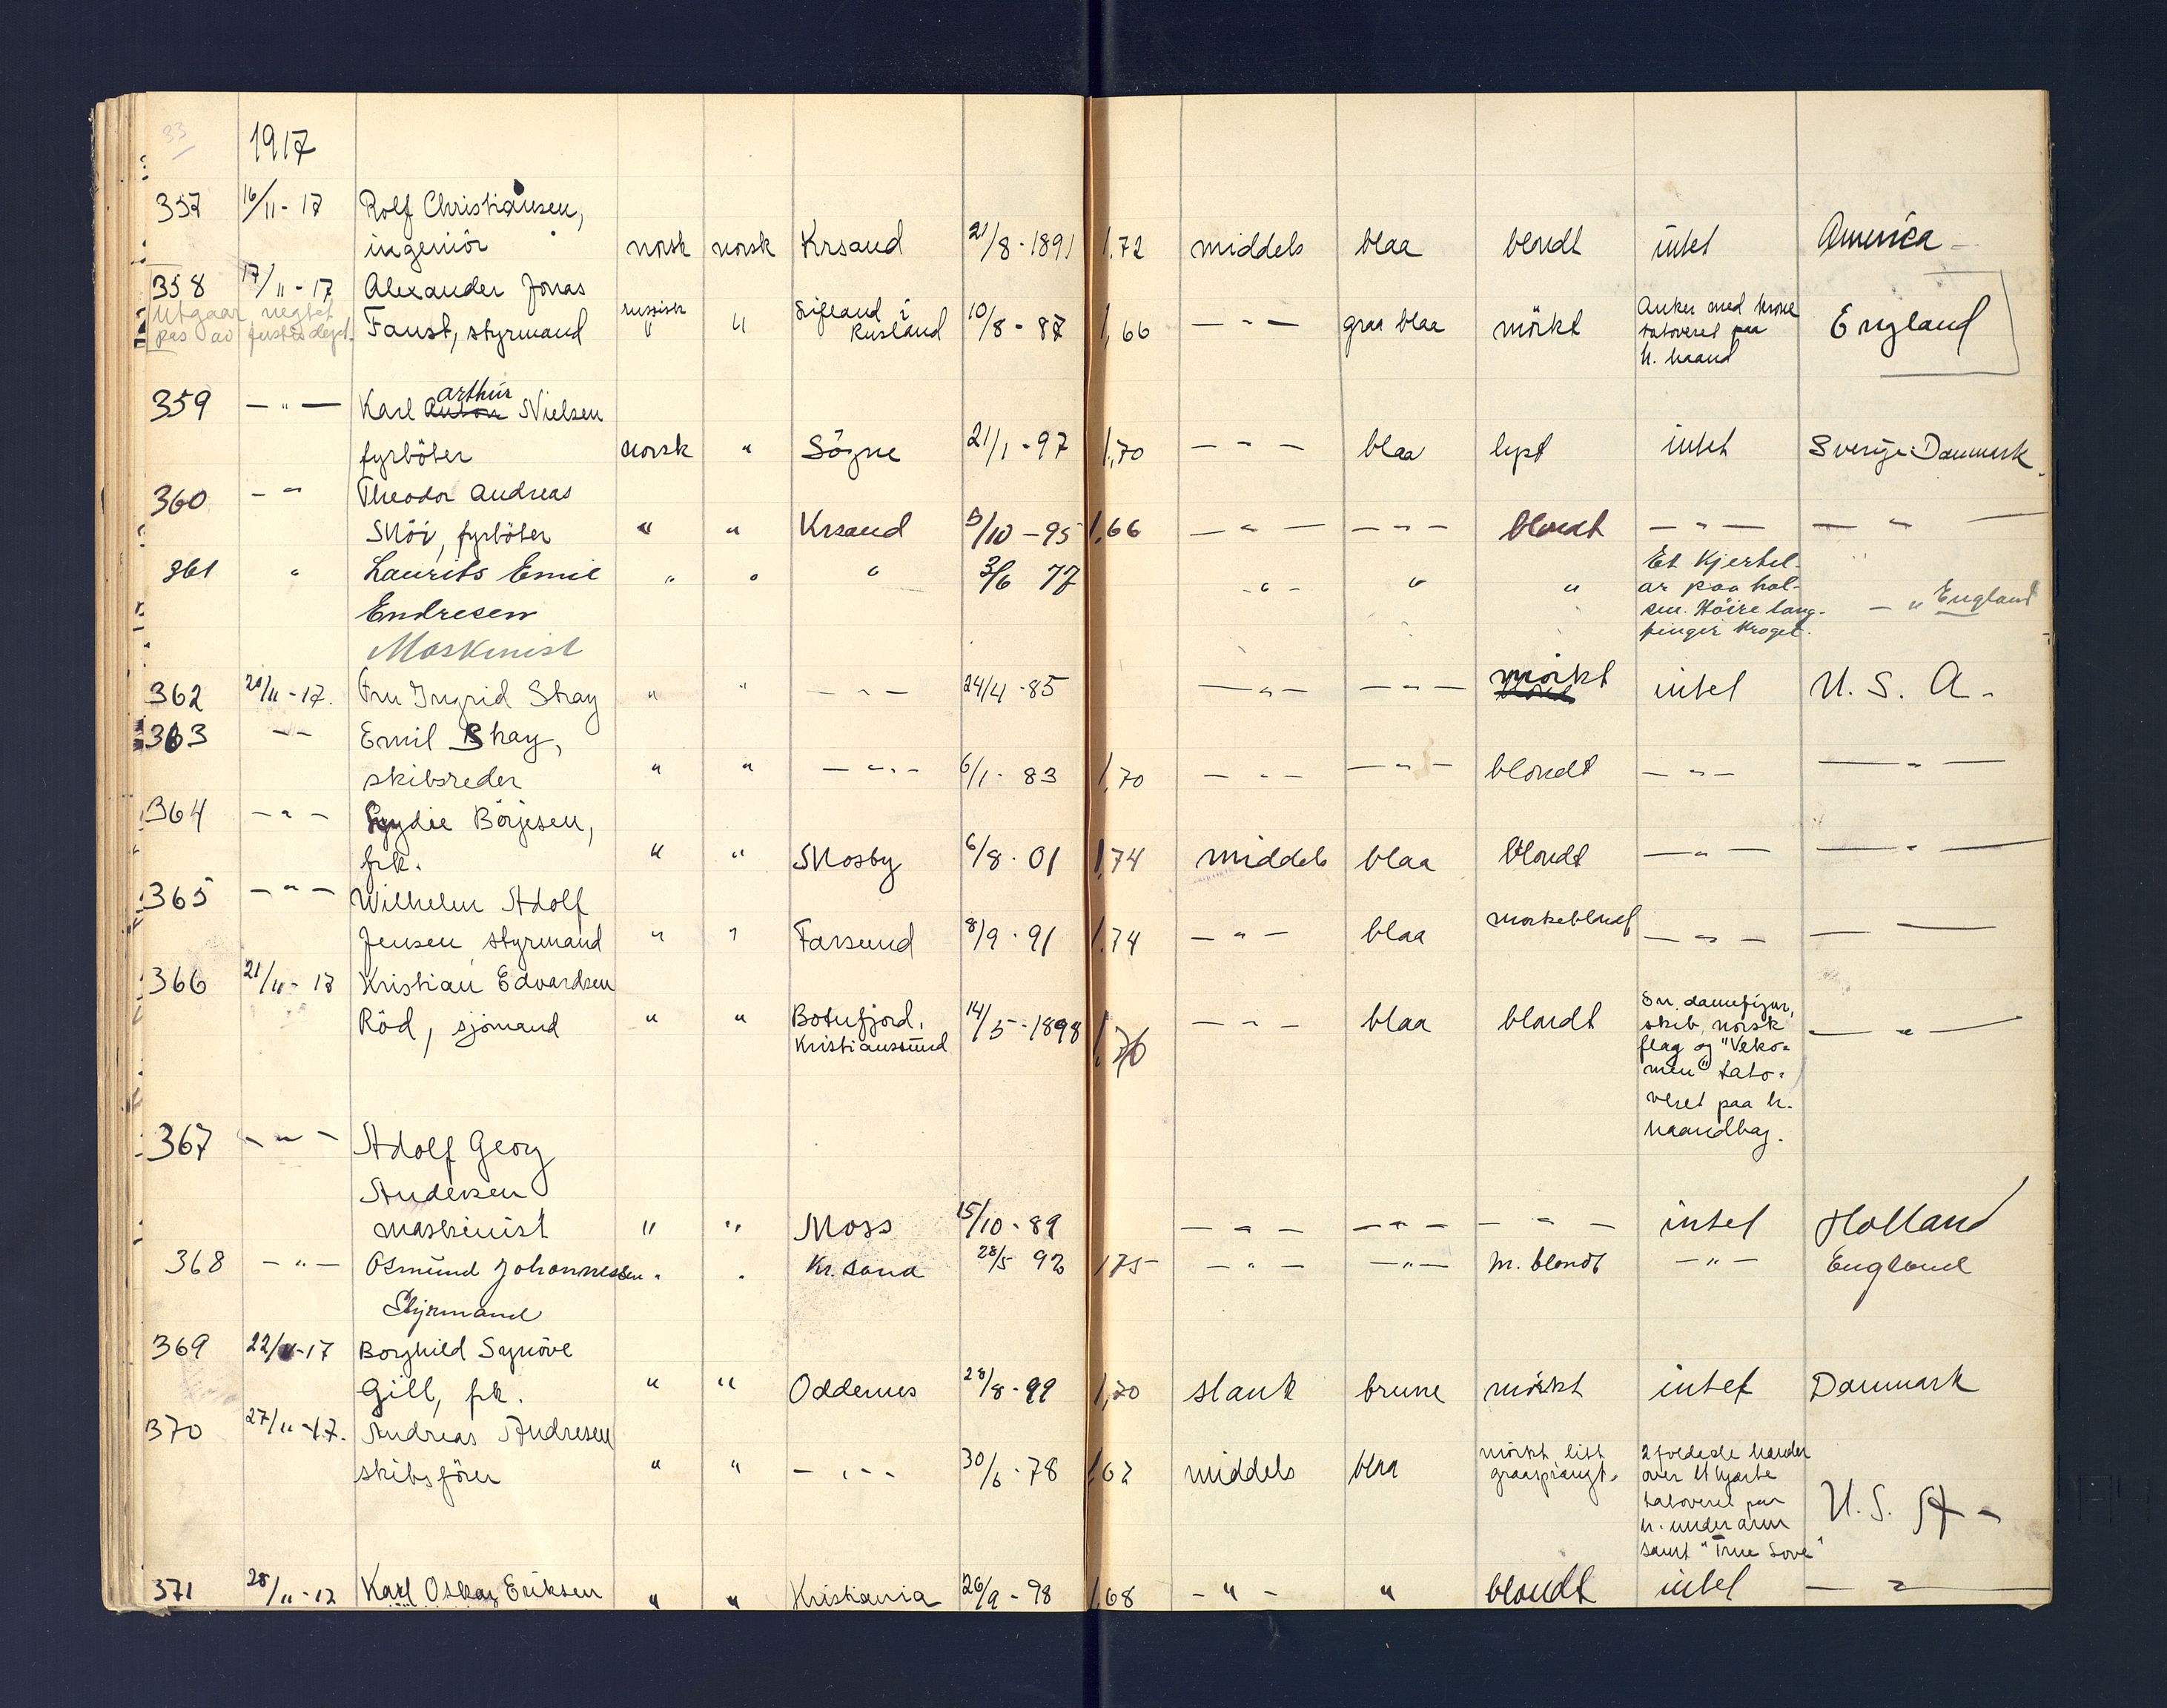 33
1917
357 16/11-17 Rolf Christiansen,
ingeniör norsk norsk Krsand 21/8-1891 1.72 middels blaa blondt intet America -
358 17/11-17 Alexander Jonas
Utgaar, negtet
pas av justisdept.
Faust, styrmand russisk " " Lifland i Rusland 10/8-87 1,66 — " — graa blaa mörkt Anker med krone tatoveret paa h. haand England
359 — " — Karl Anton arthur Nielsen
fyrböter norsk " Sögne 21/1-97 1,70 — " — blaa lyst intet Sverige-Danmark.
360 — " Theodor Andreas
Moi, fyrböter " " Krsand 5/10-95 1.66 — " — — " — blondt — " — — " —
361 " Laurits Emil " " " 3/6 77 - " - " " Et Kjertel-
ar paa hal-
sen. Höire lang-
finger kroget.
— " England
Endresen
Maskinist
362 20/11-17. Fru Ingrid Shay " " — " — 24/4-85 — " — — " — mörkt intet U.S.A.
363 — " — Emil Shay,
skibsreder " " — " — 6/1-83 1,70 — " — — " — blondt — " — — " —
364 — " — Lydie Börjesen,
frk. " " Mosby 6/8-01 1,74 middels blaa blondt — " — — " —
365 — " — Wilhelm Adolf
Jensen, styrmand " " Farsund 8/9-91 1.74 — " — blaa morkeblondt — " — — —
366 21/11-17 Kristian Edvardsen
Röd, sjömand " " Botnfjord, Kristianssund 14/5-1898 1.70 — " — blaa blondt En damefigur,
skib, norsk
flag og "Velko-
men" tato-
veret paa h.
haandbag.
— " —
367 — " — Adolf Georg
Andersen
maskinist " " Moss 15/10-89 — " — — " — — " — intet Holland
368 — " — Osmund Johannessen " " Kr.sand 28/5 92 175 — " — — " — m. blondt — " — England
Styrmand
369 22/11-17 Borghild Synöve
Gill, frk. " " Oddernes 28/8-99 1,70 slank brune mörkt intet Danmark
370 27/11-17. Andreas Andresen
skibsförer " " — " — 30/6-78 1,67 middels blaa mörkt litt
graasprængt.
2 foldede hænder
over et hjerte
tatoveret paa
h. underarm
samt "True Love"
U.S.A-
371 28/11-17 Karl Oskar Eriksen " " Kristiania 26/9-98 1.68 - " - " blondt intet — " —